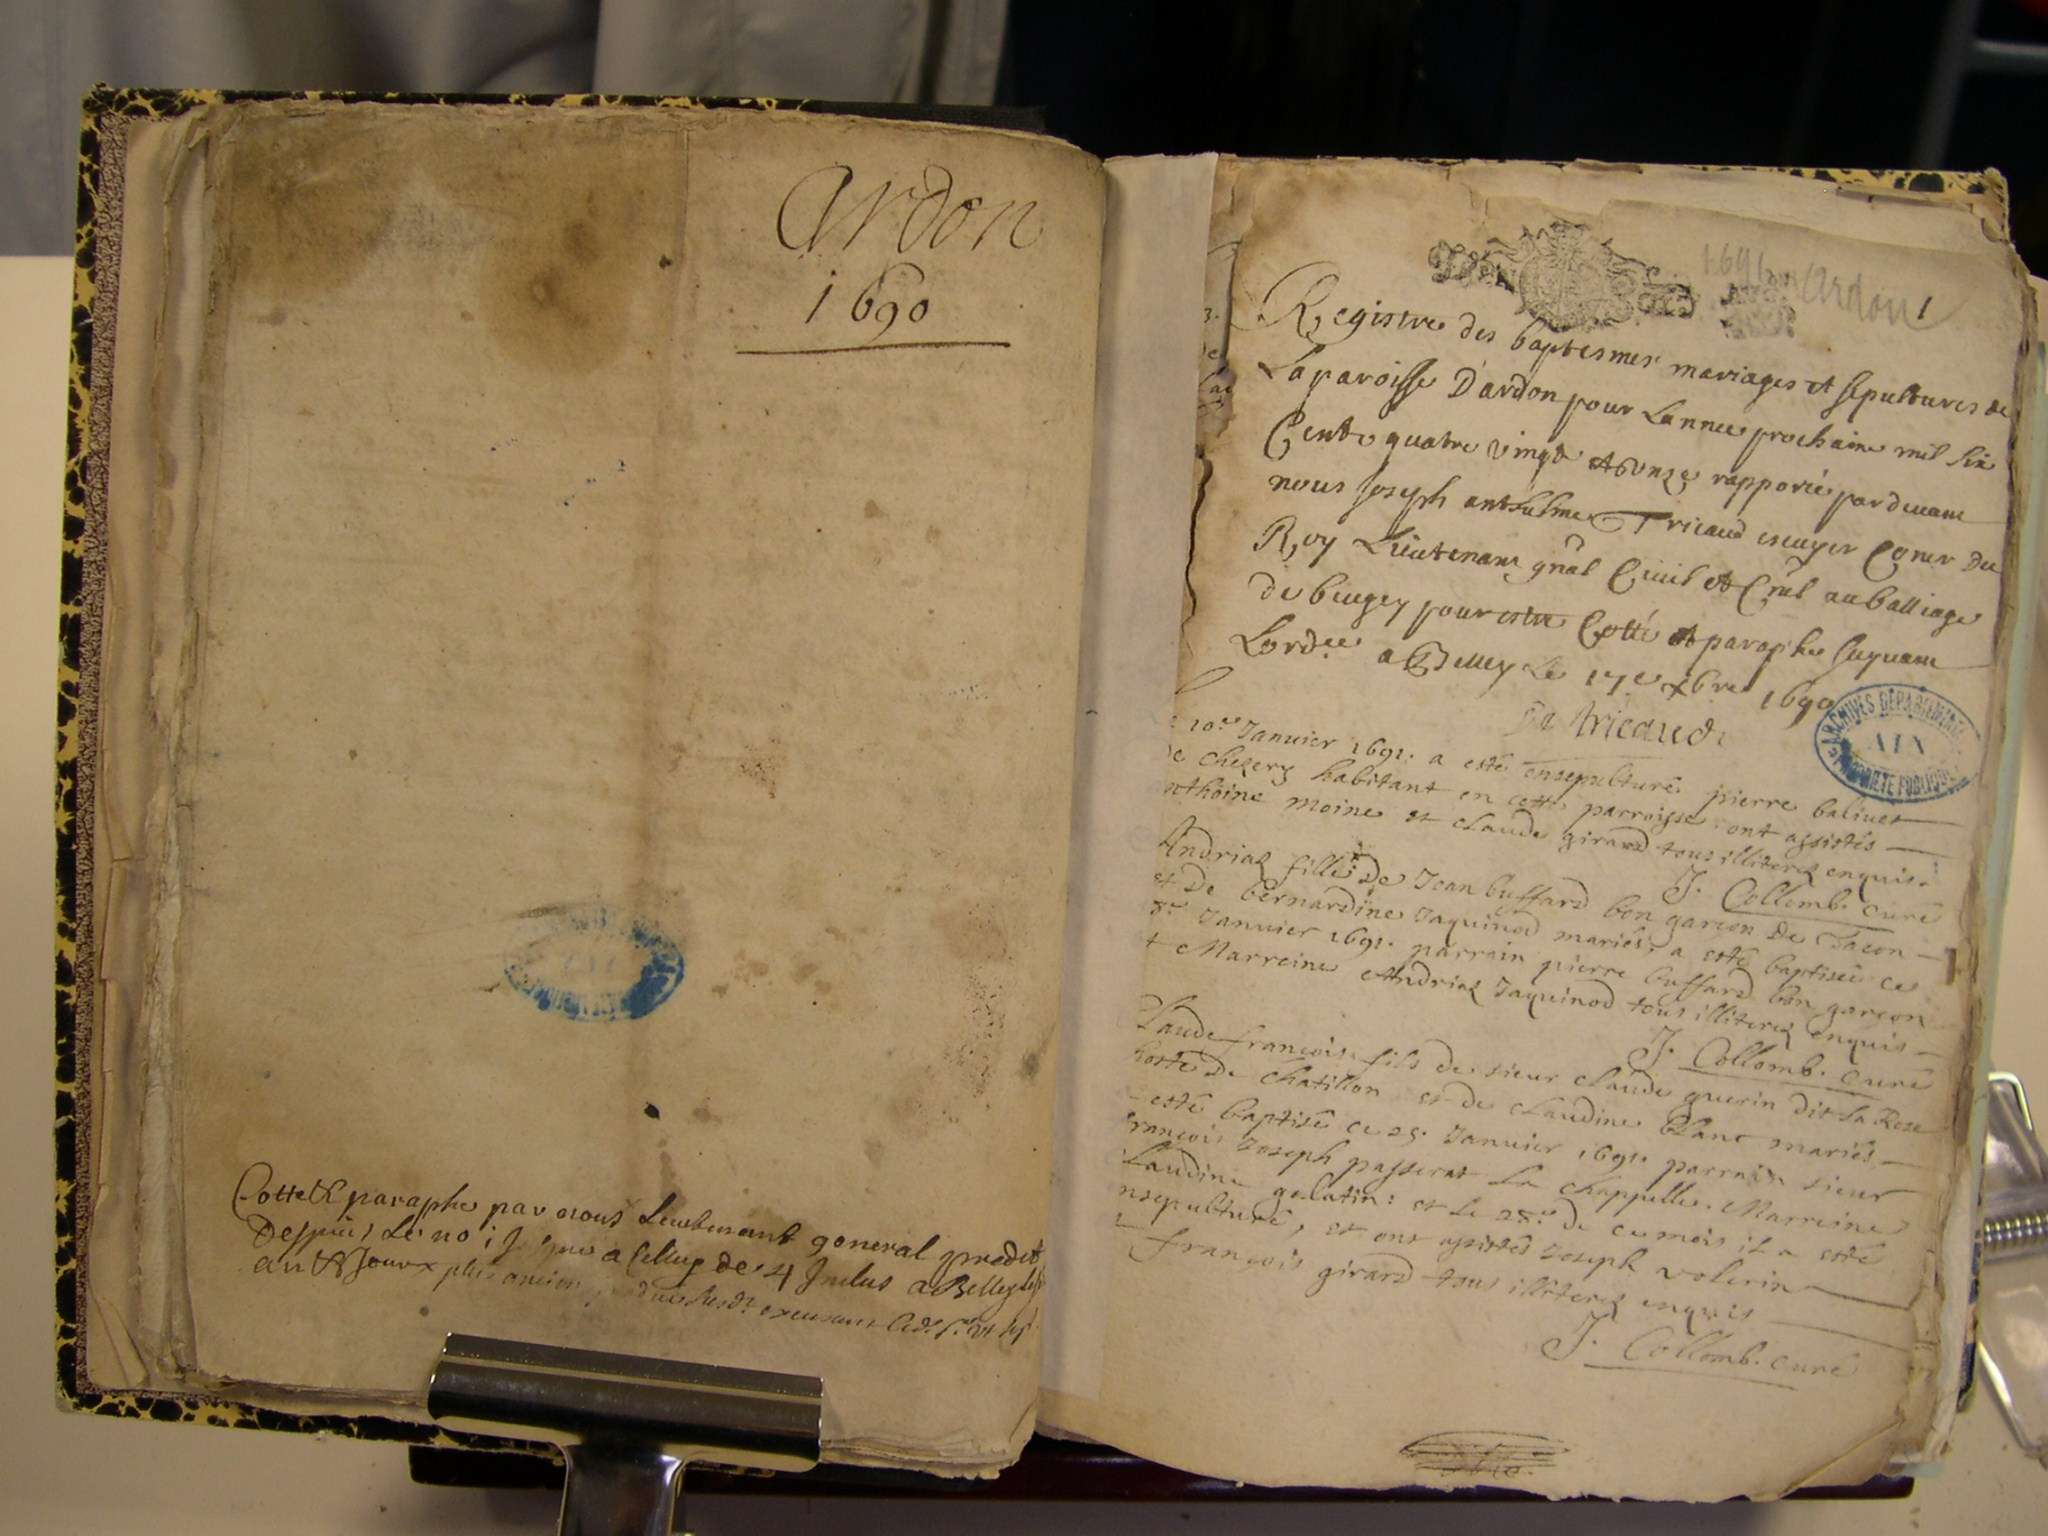 Ardon
1690
Cotte & paraphe par nous Lieutenant general
a Belley
1691 Ardon 1
Registre des baptesmes mariages et sepultures de
La paroisse D'ardon pour Lannee prochaine mil six
Cents quatre vingt et onze rapporté pardevant
nous Joseph anthelme Tricaud escuyer Coner Du
Roy Lieutenant gnal Civil et Crinl au balliage
de beugey pour estre Cotté et paraphe suyvant
Lordce a Belley Le 17e xbre 1690
De Tricaud
ARCHIVES DEPARTEMENTALES
AIN
PROPRIETE PUBLIQUE
10e Janvier 1691. a esté ensepulturé pierre balivet
de chezery habitant en cette parroisse ont assistés
nthoine moine et claude girard tous illiterez enquis.
J. Collomb. curé
Andriaz fille de Jean buffard bon garçon De Tacon
et De bernardine Jaquinod mariés, a esté baptisée ce
8e Janvier 1691. parrain pierre buffard bon garçon
t Marreine Andriaz Jaquinod tous illiterez enquis
J. Collomb. curé
Claude françois fils de sieur claude guerin dit La Roze
hoste De chatillon et de claudine blanc mariés
esté baptisé ce 25. Janvier 1691. parrain sieur
françois Joseph passerat La chappelle. Marreine
laudine galatin: et Le 28e de ce mois il a esté
nsepulturé, et ont assistés Joseph volerin
françois girard tous illiterez enquis
J. Collomb. curé